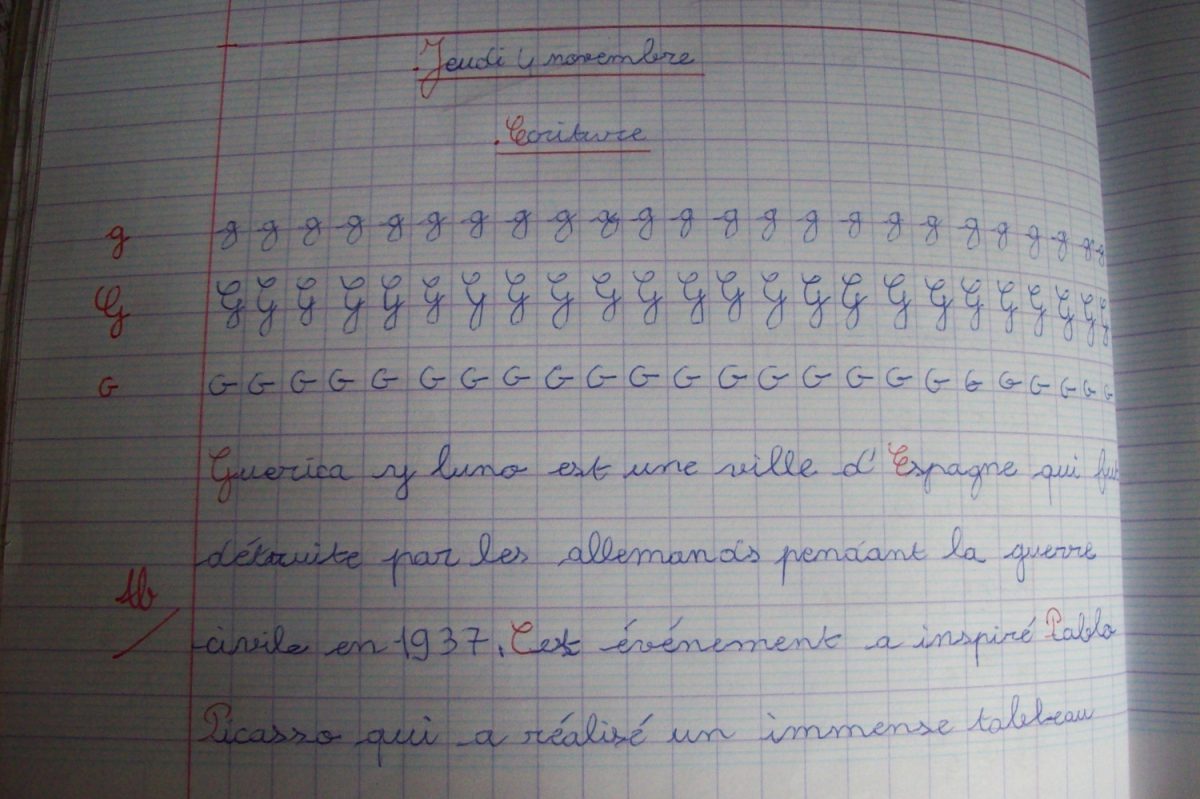 Jeudi 4 novembre
Ecriture
g g g g g g g g g g g g g g g g g g g g g g g g g
G G G G G G G G G G G G G G G G G G G G G G G G G
G G G G G G G G G G G G G G G G G G G G G G G G G
Guerica y luno est une ville d'Espagne qui fut
détruite par les allemands pendant la guerre
tb
civile en 1937. Cet événement a inspiré Pablo
Picasso qui a réalisé un immense tableau